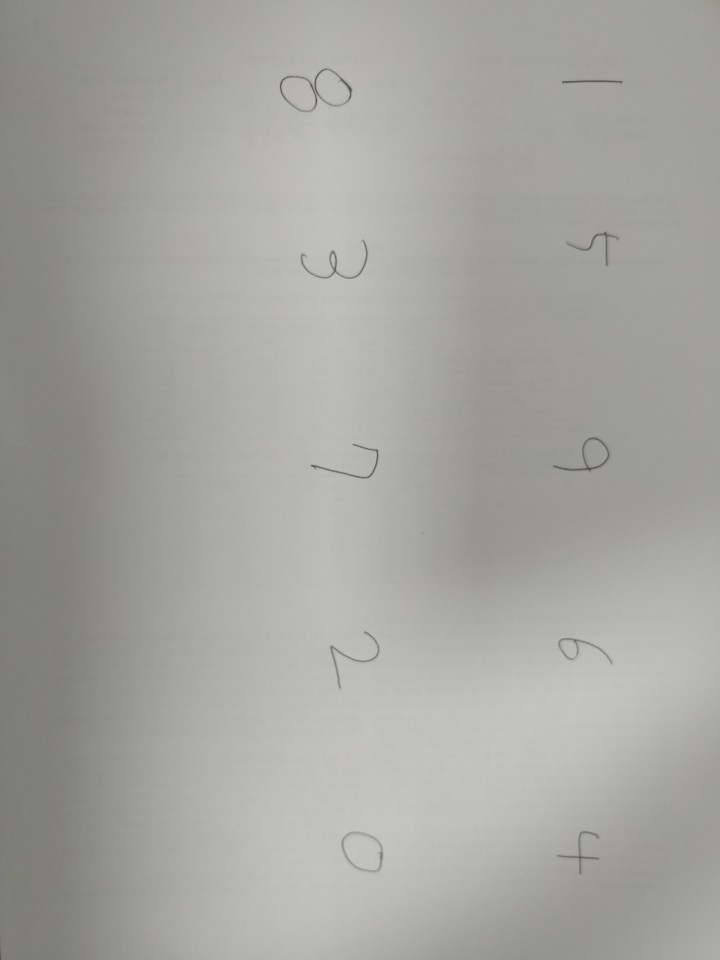 1 5 9 6 4
8 3 7 2 0